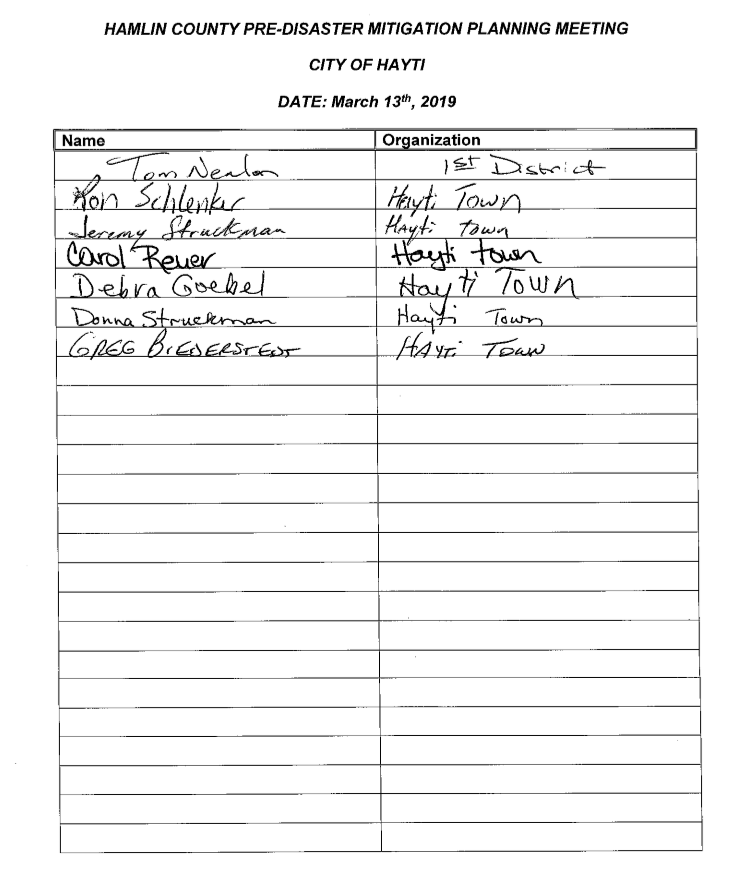 HAMLIN COUNTY PRE-DISASTER MITIGATION PLANNING MEETING
CITY OF HAYTI
DATE: March 13th, 2019
Name Organization
Tom Nealon 1st District
Ron Schlenker Hayti Town
Jeremy Struckman Hayti Town
Carol Reuer Hayti town
Debra Goebel Hayti Town
Donna Struckman Hayti Town
GREG BIEDERSTEDT HAYTI TOWN